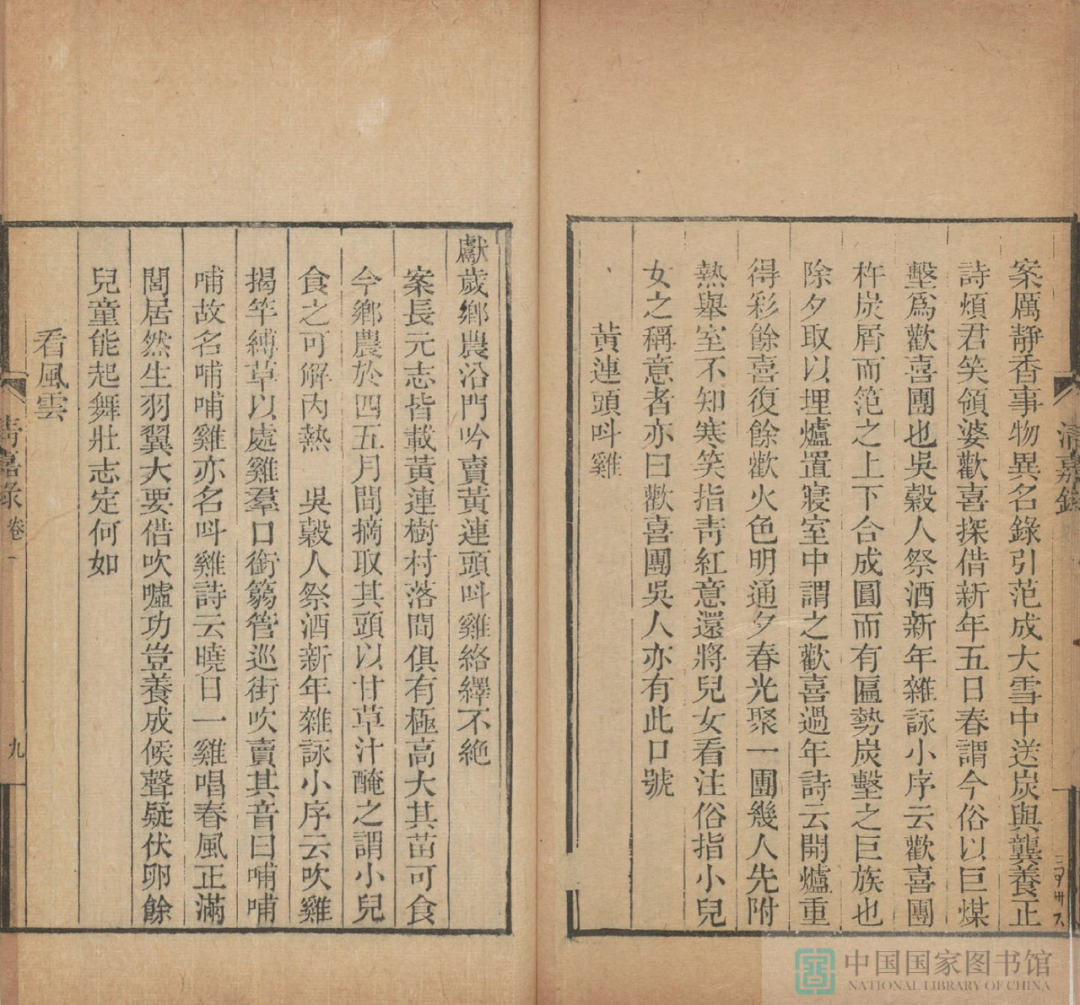 案厲靜香事物異名錄引范成大雪中送炭與龔養正
詩煩君笑領婆歡喜探借新年五日春謂今俗以巨煤
墼爲歡喜團也吳穀人祭酒新年雜詠小序云歡喜團
杵炭屑而笵之上下合成圓而有匾勢炭墼之巨族也
除夕取以埋爐置寢室中謂之歡喜過年詩云開爐重
得彩餘喜復餘歡火色明通夕春光聚一團幾人先附
熱舉室不知寒笑指靑紅意還將兒女看注俗指小兒
女之稱意者亦曰歡喜團吳人亦有此口號
黃連頭呌雞
清嘉錄
獻歲鄉農沿門吟賣黃連頭呌雞絡繹不絶
案長元志皆載黃連樹村落間俱有極高大其苗可食
今鄉農於四五月間摘取其頭以甘草汁醃之謂小兒
食之可解內熱 吳穀人祭酒新年雜詠小序云吹雞
揭竿縛草以處雞羣口銜篛管巡街吹賣其音曰哺哺
哺故名哺哺雞亦名呌雞詩云曉日一雞唱春風正滿
閶居然生羽翼大要借吹噓功豈養成候聲疑伏卵餘
兒童能起舞壯志定何如
看風雲
清嘉錄 卷一 九
中国国家图书馆
NATIONAL LIBRARY OF CHINA